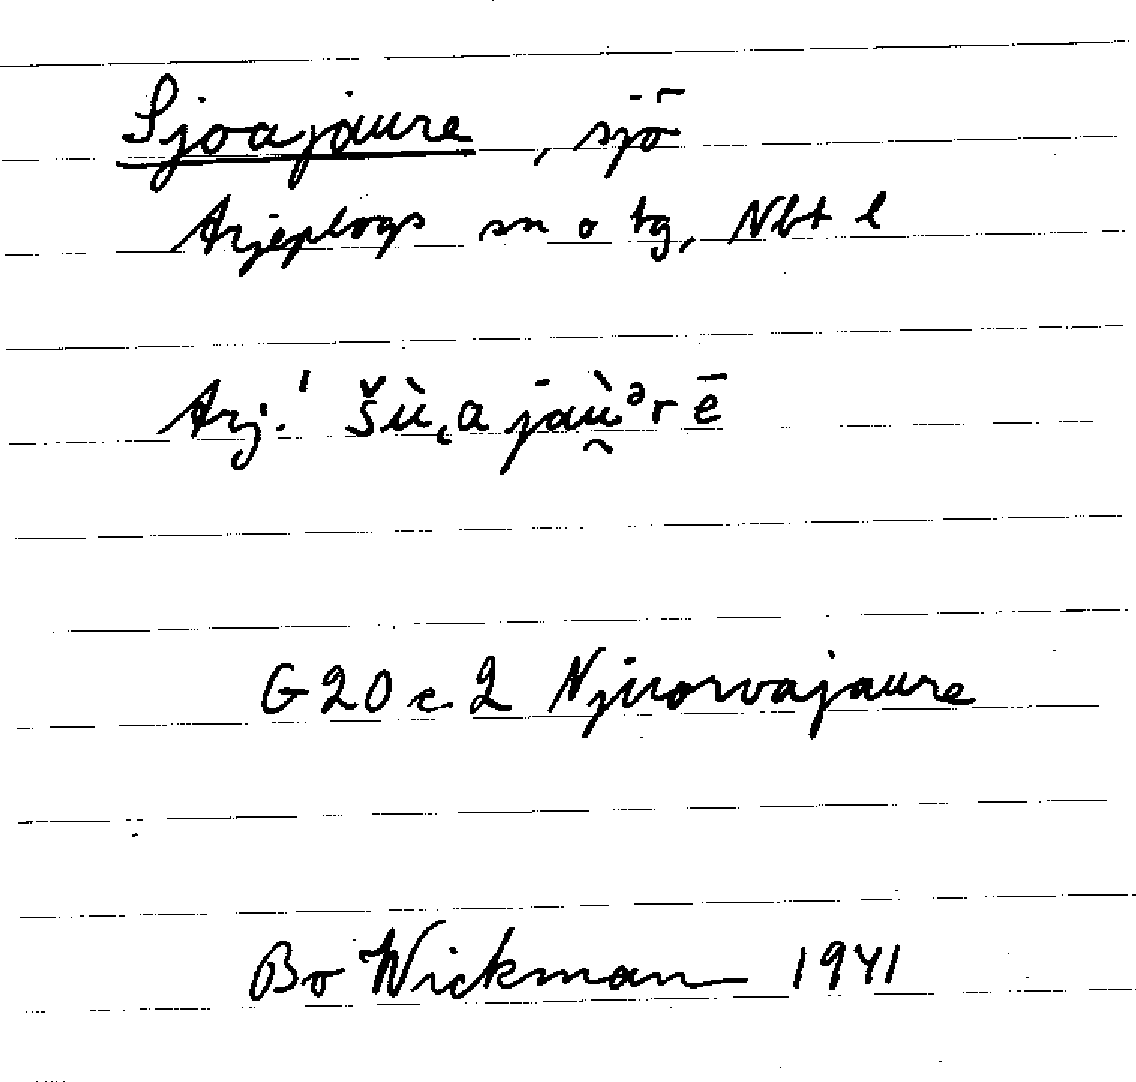 Sjoajaure, sjö
Arjeplogs sn o tg, Nbt l
Arj.' šù̜a jaù̯ᵊrē
G 20 c. 2 Njuorvajaure
Bo Wickman 1941